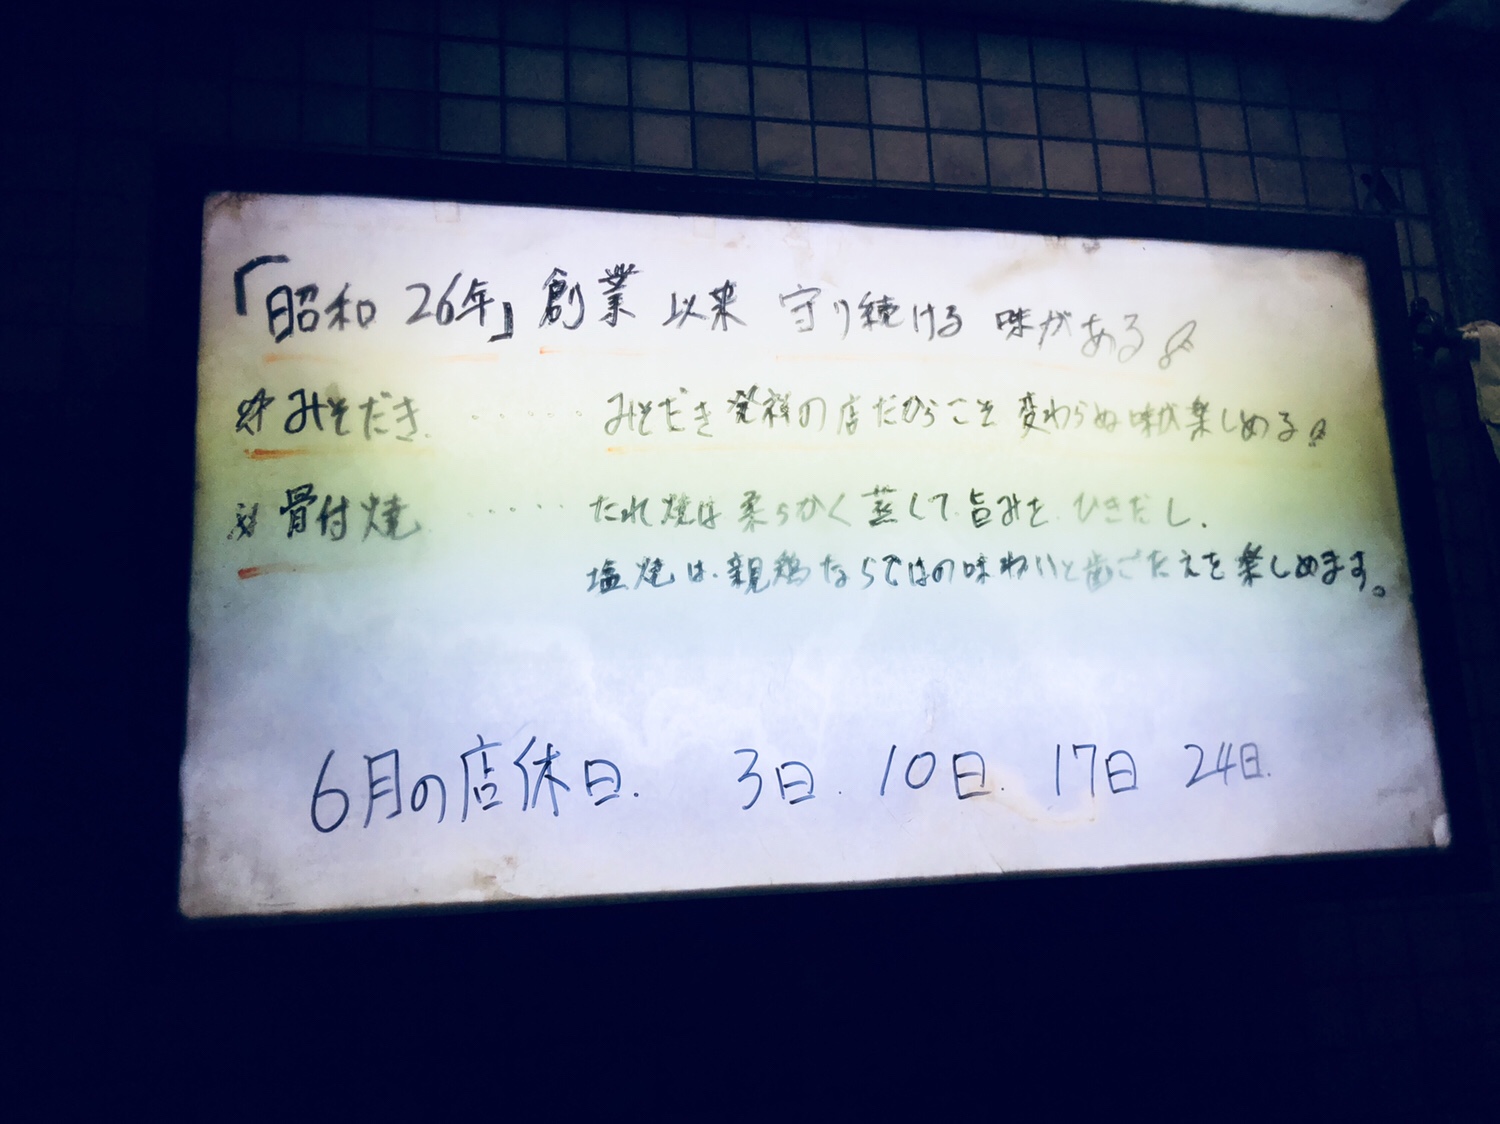 「昭和 26年」創業 以来 守り続ける 味がある!!
※みそだき ‥‥‥ みそだき 発祥の店だからこそ 変わらぬ味が楽しめる!!
※骨付焼 ‥‥‥ たれ焼は 柔らかく 蒸して 旨みを ひきだし、
塩焼は、親鶏ならではの味わいと歯ごたえを楽しめます。
6月の店休日. 3日. 10日. 17日 24日.